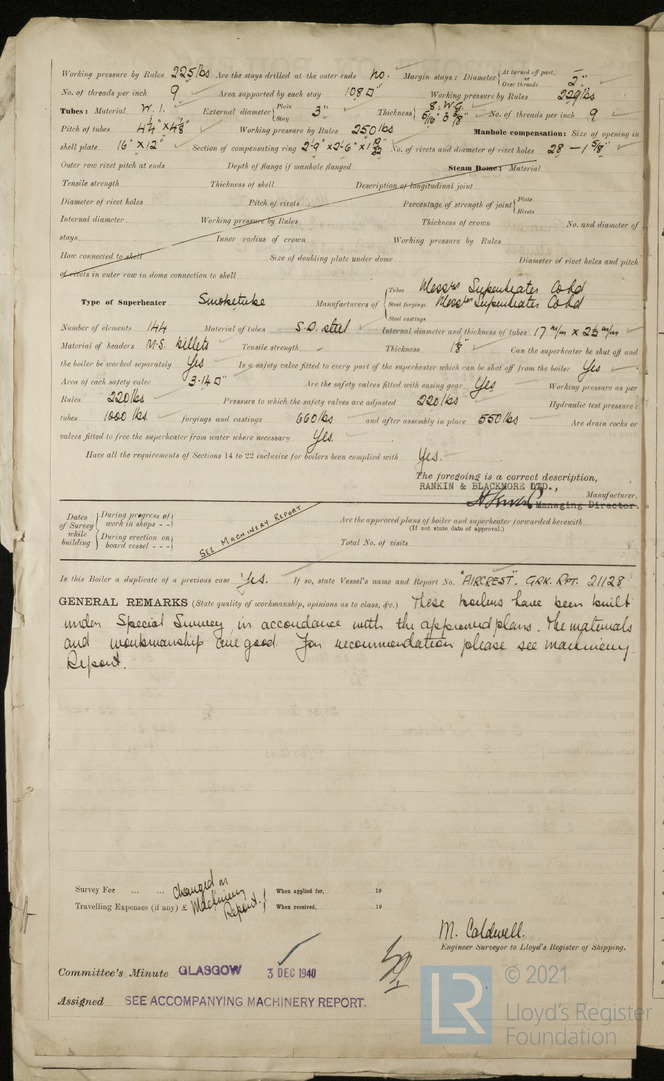 Working pressure by Rules 225 lbs Are the stays drilled at the outer ends No. Margin stays: Diameter { At turned off part, or Over threads 2"
No. of threads per inch 9 Area supported by each stay 108 □" Working pressure by Rules 229 lbs
Tubes: Material W.I. External diameter { Plain Stay 3" Thickness { 8. W.G. 5/16" & 3/8" No. of threads per inch 9
Pitch of tubes 4¼" x 4⅛" Working pressure by Rules 250 lbs Manhole compensation: Size of opening in
shell plate 16" x 12" Section of compensating ring No. of rivets and diameter of rivet holes 28 — 1⅝"
Outer row rivet pitch at ends Depth of flange if manhole flanged Steam Dome: Material
Tensile strength Thickness of shell Description of longitudinal joint
Diameter of rivet holes Pitch of rivets Percentage of strength of joint { Plate Rivets
Internal diameter Working pressure by Rules Thickness of crown No. and diameter of
stays Inner radius of crown Working pressure by Rules
How connected to shell Size of doubling plate under dome Diameter of rivet holes and pitch
of rivets in outer row in dome connection to shell
Type of Superheater Smoketube Manufacturers of { Tubes Messrs Superheater Co Ld
Steel forgings Messrs Superheater Co Ld
Steel castings
Number of elements 144 Material of tubes S.D. steel Internal diameter and thickness of tubes 17 m/m x 2½ m/m
Material of headers M.S. billets Tensile strength - Thickness 1⅛" Can the superheater be shut off and
the boiler be worked separately Yes Is a safety valve fitted to every part of the superheater which can be shut off from the boiler Yes
Area of each safety valve 3.14 □" Are the safety valves fitted with easing gear Yes Working pressure as per
Rules 220 lbs Pressure to which the safety valves are adjusted 220 lbs Hydraulic test pressure:
tubes 1000 lbs forgings and castings 660 lbs and after assembly in place 550 lbs Are drain cocks or
valves fitted to free the superheater from water where necessary Yes.
Have all the requirements of Sections 14 to 22 inclusive for boilers been complied with Yes.
The foregoing is a correct description,
RANKIN & BLACKMORE LTD.,
Manufacturer.
Managing Director.
Dates of Survey while building { During progress of work in shops - - } { During erection on board vessel - - - } SEE MACHINERY REPORT Are the approved plans of boiler and superheater forwarded herewith
(If not state date of approval.)
Total No. of visits
Is this Boiler a duplicate of a previous case Yes. If so, state Vessel's name and Report No. "AIRCREST". GRK. RPT. 21128
GENERAL REMARKS (State quality of workmanship, opinions as to class, &c.) These boilers have been built
under Special Survey in accordance with the approved plans. The materials
and workmanship are good. For recommendation please see machinery
Report.
Survey Fee ... ... charged on When applied for, 19
Travelling Expenses (if any) £ Machinery Report. When received, 19
M. Caldwell.
Engineer Surveyor to Lloyd's Register of Shipping.
Committee's Minute GLASGOW 3 DEC 1940
Assigned SEE ACCOMPANYING MACHINERY REPORT.
LR © 2021
Lloyd's Register
Foundation